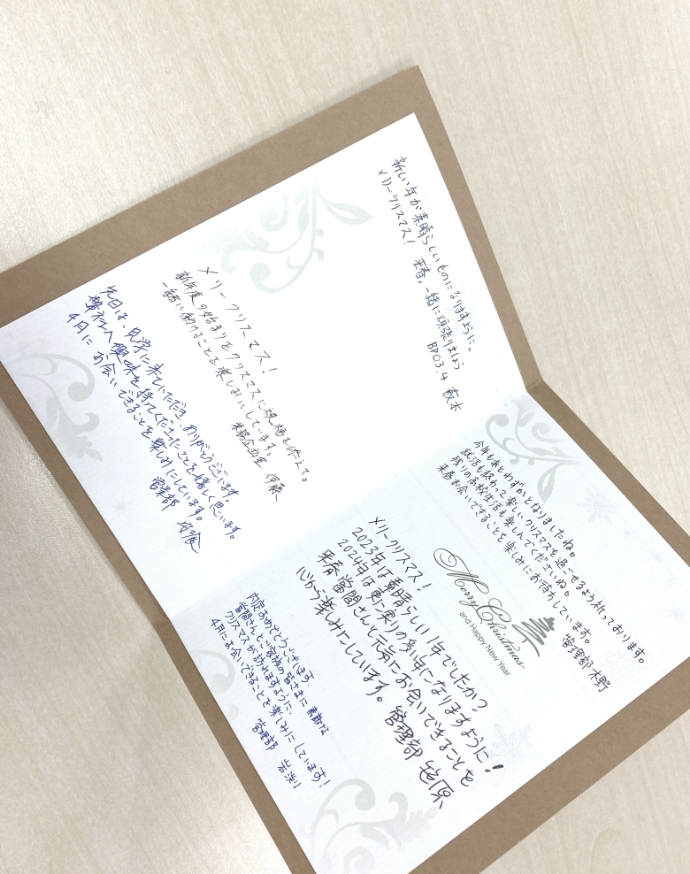 新しい年が素晴らしいものになりますように。
メリークリスマス!
来春、一緒に頑張りましょう
BP03.4
メリークリスマス!
新年度の始まりをクリスマスに現場を添えて。
一緒に働けることを楽しみにしています。
伊藤
先日は、見学に来ていただき、ありがとうございます
弊社へ興味を持ってくださったことを嬉しく思います。
4月に お会いできることを楽しみにしています。
営業部
今年もあとわずかとなりましたね。
就活も終わって楽しいクリスマスを過ごせるよう祈っております。
残りの高校生活も楽しんでくださいね。
来春お会いできることを楽しみにお待ちしています。
管理部 木野
Merry Christmas
and Happy New Year
メリークリスマス!
2023年は素晴らしい1年でしたか?
2024年は更に実りの多い年になりますように!
来春 當間さんと元気にお会いできることを
心から楽しみにしています。
管理部 笹原
内定おめでとうございます。
當間さんとご家族の皆さまに 素敵な
クリスマスが訪れますように。
4月にお会いできることを楽しみにしています!
管理部 岩渕